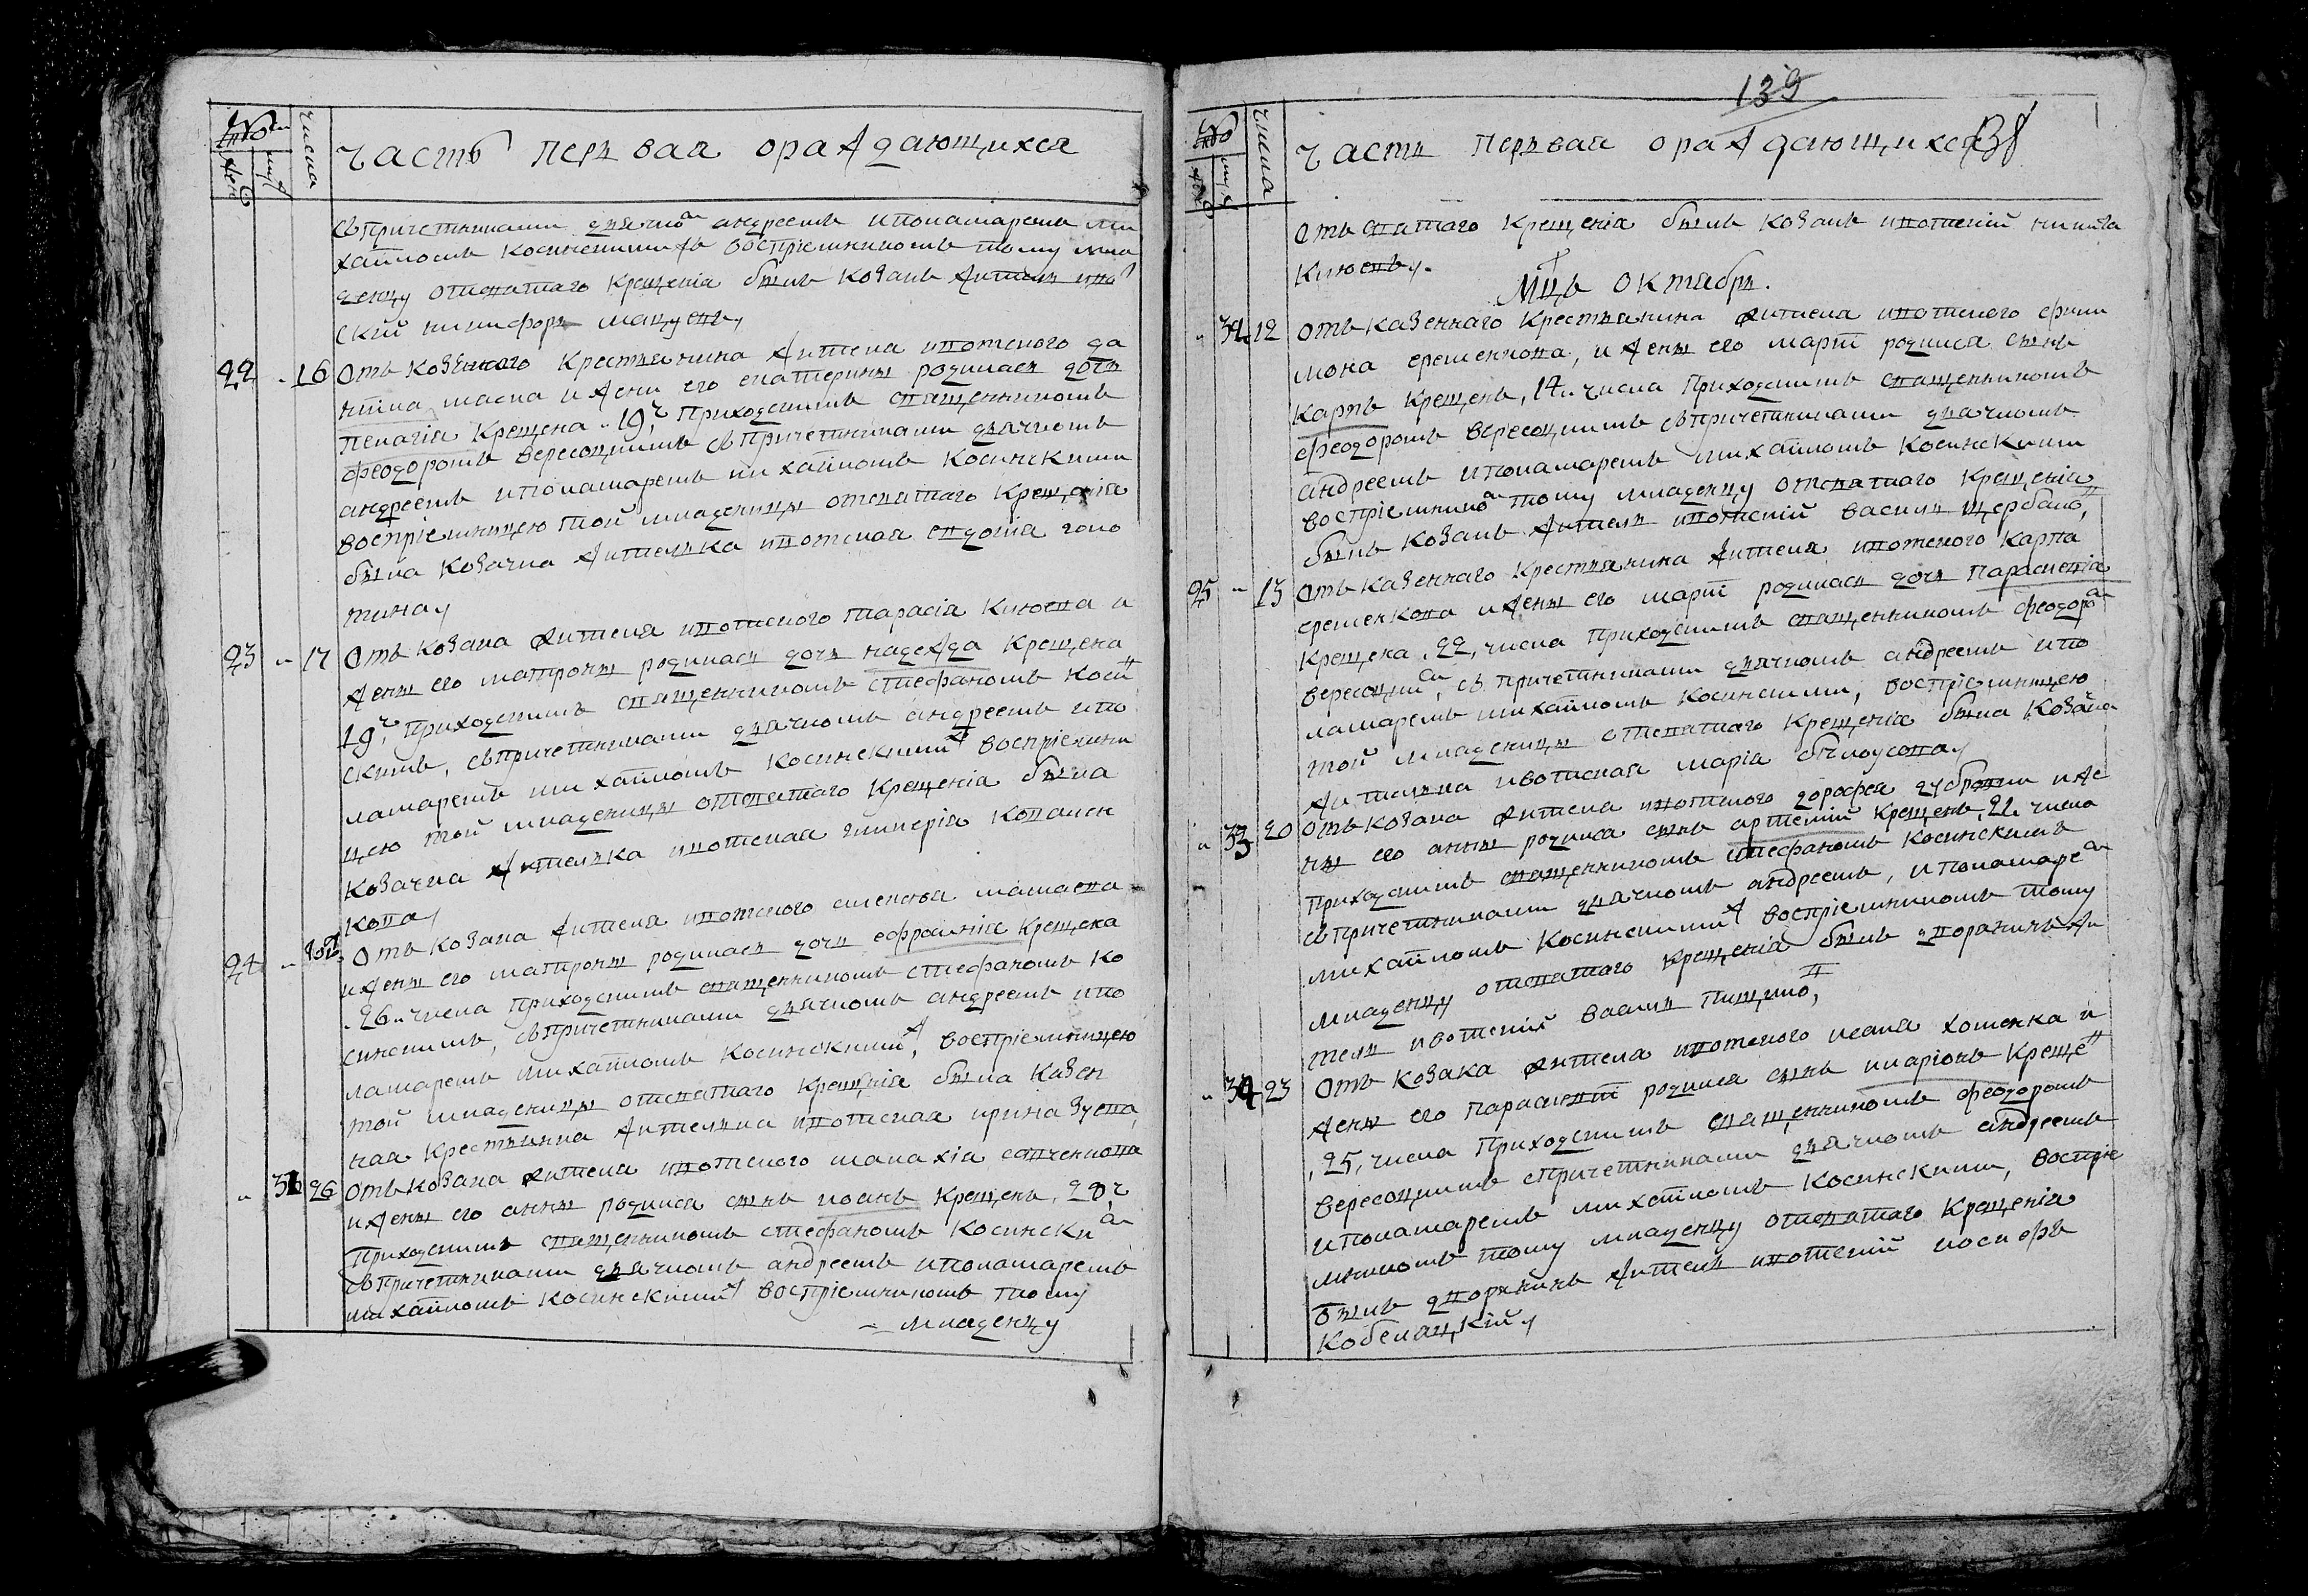 Часть первая о раждающихся
числа
съ причетниками дьячко андреемъ и пономаремъ ми
хаиломъ Косинскими въ воспріемникомъ тому мла
денцу отъ святаго Крещенія былъ Козакъ житель
скій никифоръ
22 - 16 Отъ Козеннаго Крестьянина жителя ивотского да
и жени его екатерины родилась дочь
пелагія Крещена 19 ч Приходскимъ священникомъ
феодоромъ Вересоцкимъ съ причетниками дьячкомъ
андреемъ и пономаремъ михаиломъ Косинскими
воспріемницею той младеницы отъ святаго Крещенія
была Козачка жителька ивотская евдокія голо
тина
23 - 17 Отъ Козака жителя ивотского тарасія Клюева и
жены его матроны родилась дочь надежда Крещена
19 ч Приходскимъ священникомъ стефаномъ Косин
скимъ, съ причетниками дьячкомъ андреемъ и по
намаремъ михаиломъ Косинскими воспріемни
цею той младеницы отъ святаго Крещенія была
Козачка жителька ивотская гликерія
кова
24 - Отъ Козака жителя ивотского
и жены его матроны родилась дочь ефросинія Крещена
26 числа Приходскимъ священникомъ стефаномъ Ко
синскимъ, съ причетниками дьячкомъ андреемъ и по
намаремъ михаиломъ Косинскими, воспріемницею
той младеницы отъ святаго Крещенія была Казен
ная Крестьянка жителька ивотская ирина Зуева
31 26 Отъ Козака жителя ивотского малахія
и жены его анны родился сынъ иоанъ Крещенъ 28 ч
Приходскимъ священникомъ стефаномъ Косински
съ причетниками дьячкомъ андреемъ и пономаремъ
михаиломъ Косинскими воспріемникомъ тому
младенцу
139
Часть первая о раждающихся
числа
отъ святаго Крещенія былъ Козакъ ивотскій никита
Клюевъ
Мцъ октябрь.
12 Отъ Казеннаго Крестьянина жителя ивотского фили
мона еременкова, и жены его марты родился сынъ
Карпъ Крещенъ, 14 числа Приходскимъ священникомъ
феодоромъ Вересоцкимъ съ причетниками дьячкомъ
андреемъ и пономаремъ михаиломъ Косинскими
воспріемнико тому младенцу отъ святаго Крещенія
былъ Козакъ житель ивотскій василь щербако
25 - 13 Отъ Казеннаго Крестьянина жителя ивотского Карпа
еременкова и жены его марты родилась дочь Параскевія
Крещена 22, числа Приходскимъ священникомъ феодоро
вересоцки, съ причетниками дьячкомъ андреемъ и по
намаремъ михаиломъ Косинскими, воспріемницею
той младеницы отъ святаго Крещенія была Козачка
жителька ивотская марія белоусова
33 20 Отъ Козака жителя ивотского дорофея и же
ны его анны родился сынъ артемій Крещенъ, 22 числа
Приходскимъ священникомъ стефаномъ Косинскимъ
съ причетниками дьячкомъ андреемъ, и пономаре
михаиломъ Косинскими воспріемникомъ тому
младенцу отъ святаго Крещенія былъ дворянинъ жи
тель ивотскій василь
34 23 Отъ Козака жителя ивотского исака хоменка и
жены его Параскевіи родился сынъ иларіонъ Креще
25, числа Приходскимъ священникомъ феодоромъ
Вересоцкимъ с причетниками дьячкомъ андреемъ
и пономаремъ михаиломъ Косинскими, воспріе
мникомъ тому младенцу отъ святаго Крещенія
былъ дворянинъ житель ивотскій иосифъ
Кобелацкій